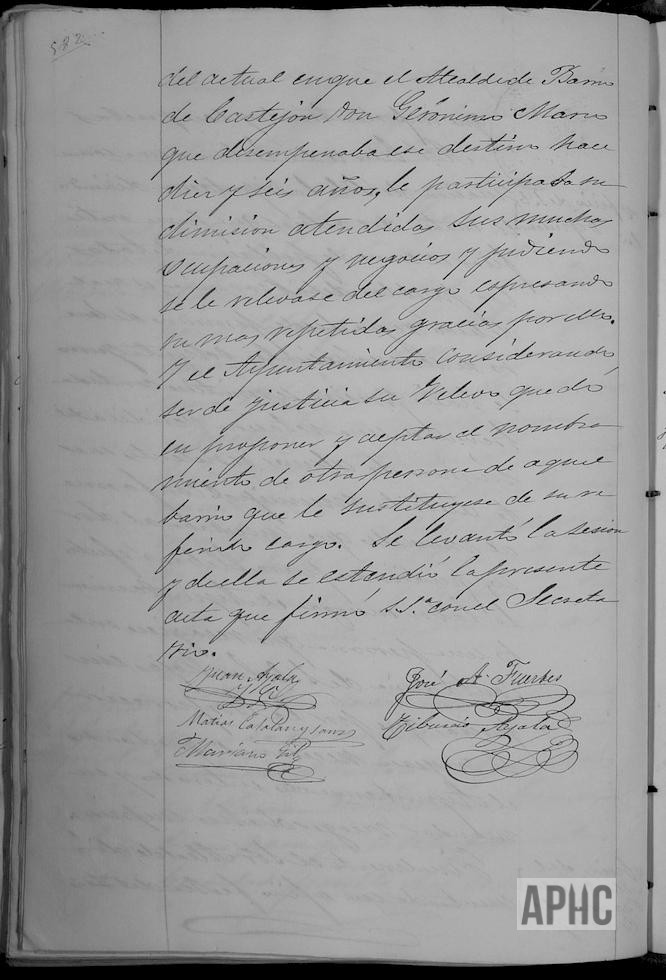 582
del actual en que el Alcalde de Barrio
de Castejón Don Gerónimo Marco
que desempeñaba ese destino hace
diez y seis años, le participaba su
dimision atendidas sus muchas
ocupaciones y negocios y pidiendo
se le relevase del cargo espresando
su mas repetidas gracias por ello.
Y el Ayuntamiento considerando
ser de justicia su relevo quedó
en proponer y aceptar el nombra
miento de otra persona de aquel
barrio que le sustituyese de su re
ferido cargo. Se levantó la sesion
y de ella se estendió la presente
acta que firmó S.Sª con el Secreta
rio.
Juan Ayala
José A. Fuertes
Matias Catalan y Sanz
Tiburcio Ayala
Mariano Gil
APHC